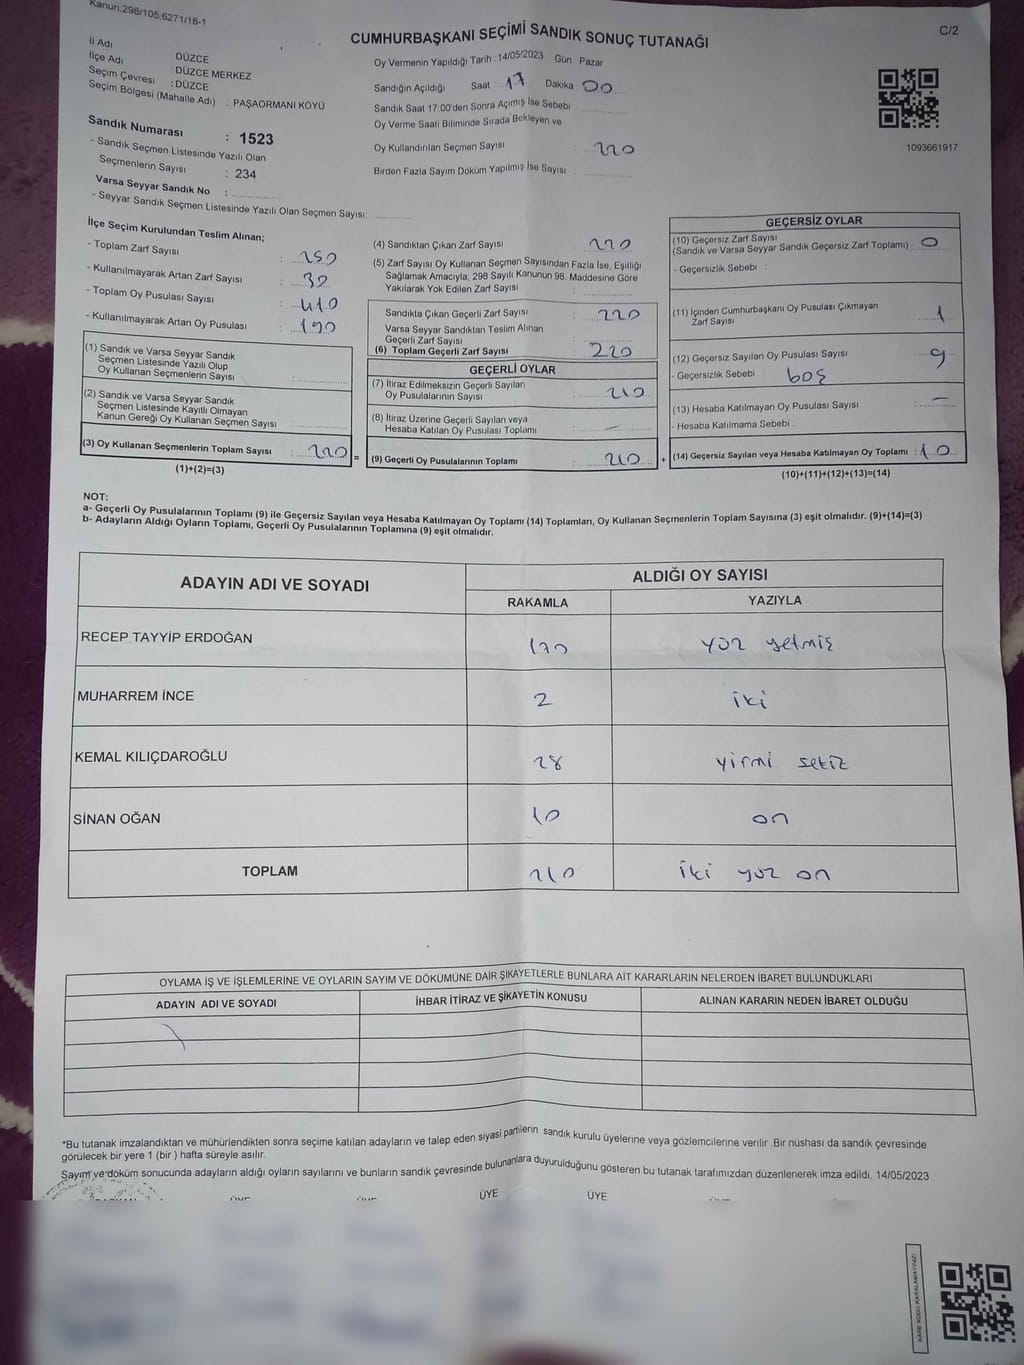 Kanun:298/105,6271/18-1
C/2
CUMHURBAŞKANI SEÇİMİ SANDIK SONUÇ TUTANAĞI
İl Adı : DÜZCE
İlçe Adı : DÜZCE MERKEZ
Seçim Çevresi : DÜZCE
Seçim Bölgesi (Mahalle Adı) : PAŞAORMANI KÖYÜ
Sandık Numarası : 1523
- Sandık Seçmen Listesinde Yazılı Olan
Seçmenlerin Sayısı : 234
Varsa Seyyar Sandık No :
- Seyyar Sandık Seçmen Listesinde Yazılı Olan Seçmen Sayısı:
Oy Vermenin Yapıldığı Tarih :14/05/2023 Gün Pazar
Sandığın Açıldığı Saat 17 Dakika 00
Sandık Saat 17:00'den Sonra Açımış İse Sebebi
Oy Verme Saati Bitiminde Sırada Bekleyen ve
Oy Kullandırılan Seçmen Sayısı : 220
Birden Fazla Sayım Döküm Yapılmış İse Sayısı :
1093661917
İlçe Seçim Kurulundan Teslim Alınan;
- Toplam Zarf Sayısı : 250
- Kullanılmayarak Artan Zarf Sayısı : 30
- Toplam Oy Pusulası Sayısı : 410
- Kullanılmayarak Artan Oy Pusulası : 190
(1) Sandık ve Varsa Seyyar Sandık
Seçmen Listesinde Yazılı Olup
Oy Kullanan Seçmenlerin Sayısı :
(2) Sandık ve Varsa Seyyar Sandık
Seçmen Listesinde Kayıtlı Olmayan
Kanun Gereği Oy Kullanan Seçmen Sayısı :
(3) Oy Kullanan Seçmenlerin Toplam Sayısı : 220 =
(1)+(2)=(3)
(4) Sandıktan Çıkan Zarf Sayısı : 220
(5) Zarf Sayısı Oy Kullanan Seçmen Sayısından Fazla İse, Eşitliği
Sağlamak Amacıyla, 298 Sayılı Kanunun 98. Maddesine Göre
Yakılarak Yok Edilen Zarf Sayısı :
Sandıkta Çıkan Geçerli Zarf Sayısı : 220
Varsa Seyyar Sandıktan Teslim Alınan
Geçerli Zarf Sayısı :
(6) Toplam Geçerli Zarf Sayısı : 220
GEÇERLİ OYLAR
(7) İtiraz Edilmeksizin Geçerli Sayılan
Oy Pusulalarının Sayısı : 210
(8) İtiraz Üzerine Geçerli Sayılan veya
Hesaba Katılan Oy Pusulası Toplamı : -
(9) Geçerli Oy Pusulalarının Toplamı : 210 +
GEÇERSİZ OYLAR
(10) Geçersiz Zarf Sayısı
(Sandık ve Varsa Seyyar Sandık Geçersiz Zarf Toplamı) : 0
- Geçersizlik Sebebi :
(11) İçinden Cumhurbaşkanı Oy Pusulası Çıkmayan
Zarf Sayısı : 1
(12) Geçersiz Sayılan Oy Pusulası Sayısı : 9
- Geçersizlik Sebebi : boş
(13) Hesaba Katılmayan Oy Pusulası Sayısı : -
- Hesaba Katılmama Sebebi :
(14) Geçersiz Sayılan veya Hesaba Katılmayan Oy Toplamı : 10
(10)+(11)+(12)+(13)=(14)
NOT:
a- Geçerli Oy Pusulalarının Toplamı (9) ile Geçersiz Sayılan veya Hesaba Katılmayan Oy Toplamı (14) Toplamları, Oy Kullanan Seçmenlerin Toplam Sayısına (3) eşit olmalıdır. (9)+(14)=(3)
b- Adayların Aldığı Oyların Toplamı, Geçerli Oy Pusulalarının Toplamına (9) eşit olmalıdır.
ADAYIN ADI VE SOYADI ALDIĞI OY SAYISI
RAKAMLA YAZIYLA
RECEP TAYYİP ERDOĞAN 170 yüz yetmiş
MUHARREM İNCE 2 iki
KEMAL KILIÇDAROĞLU 28 yirmi sekiz
SİNAN OĞAN 10 on
TOPLAM 210 iki yüz on
OYLAMA İŞ VE İŞLEMLERİNE VE OYLARIN SAYIM VE DÖKÜMÜNE DAİR ŞİKAYETLERLE BUNLARA AİT KARARLARIN NELERDEN İBARET BULUNDUKLARI
ADAYIN ADI VE SOYADI İHBAR İTİRAZ VE ŞİKAYETİN KONUSU ALINAN KARARIN NEDEN İBARET OLDUĞU
*Bu tutanak imzalandıktan ve mühürlendikten sonra seçime katılan adayların ve talep eden siyasi partilerin sandık kurulu üyelerine veya gözlemcilerine verilir .Bir nushası da sandık çevresinde
görülecek bir yere 1 (bir ) hafta süreyle asılır.
Sayım ve döküm sonucunda adayların aldığı oyların sayılarını ve bunların sandık çevresinde bulunanlara duyurulduğunu gösteren bu tutanak tarafımızdan düzenlenerek imza edildi. 14/05/2023
ÜYE ÜYE
KARE KODU KARALAMAYINIZ!